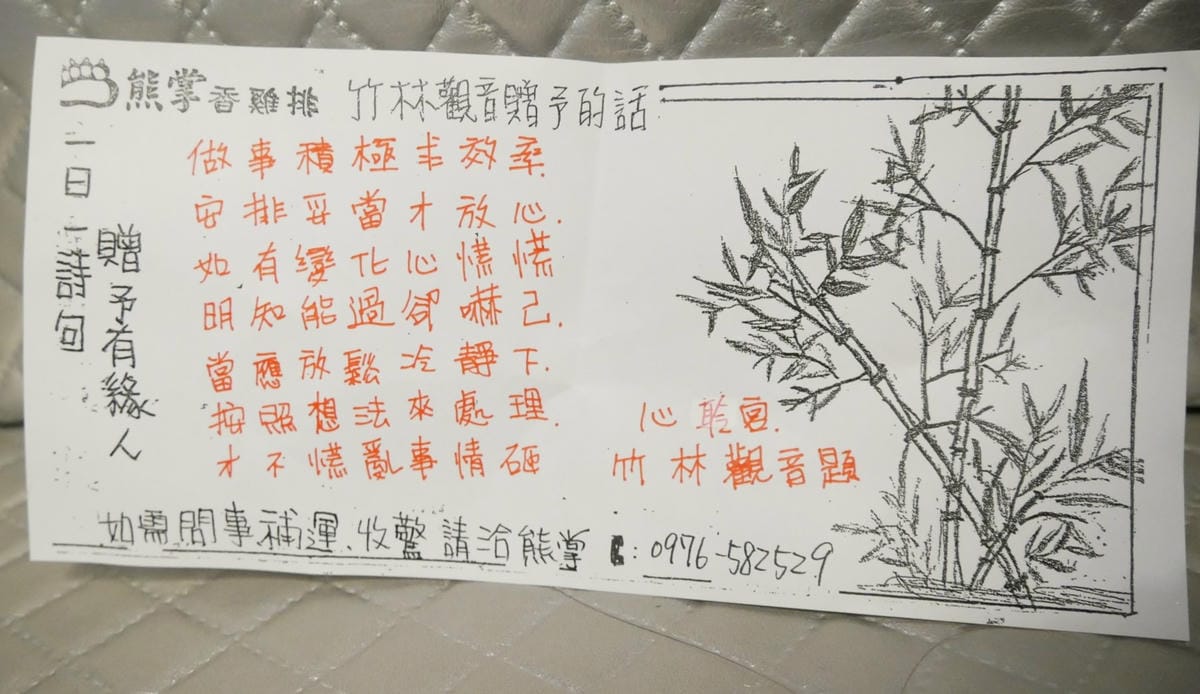 熊掌香雞排 竹林觀音贈予的話
一日一詩句
贈予有緣人
做事積極求效率
安排妥當才放心.
如有變化心慌慌
明知能過卻嚇己.
當應放鬆冷靜下.
按照想法來處理.
才不慌亂事情砸
心聆宮.
竹林觀音題
如需問事補運、收驚請洽熊掌 : 0976-582529